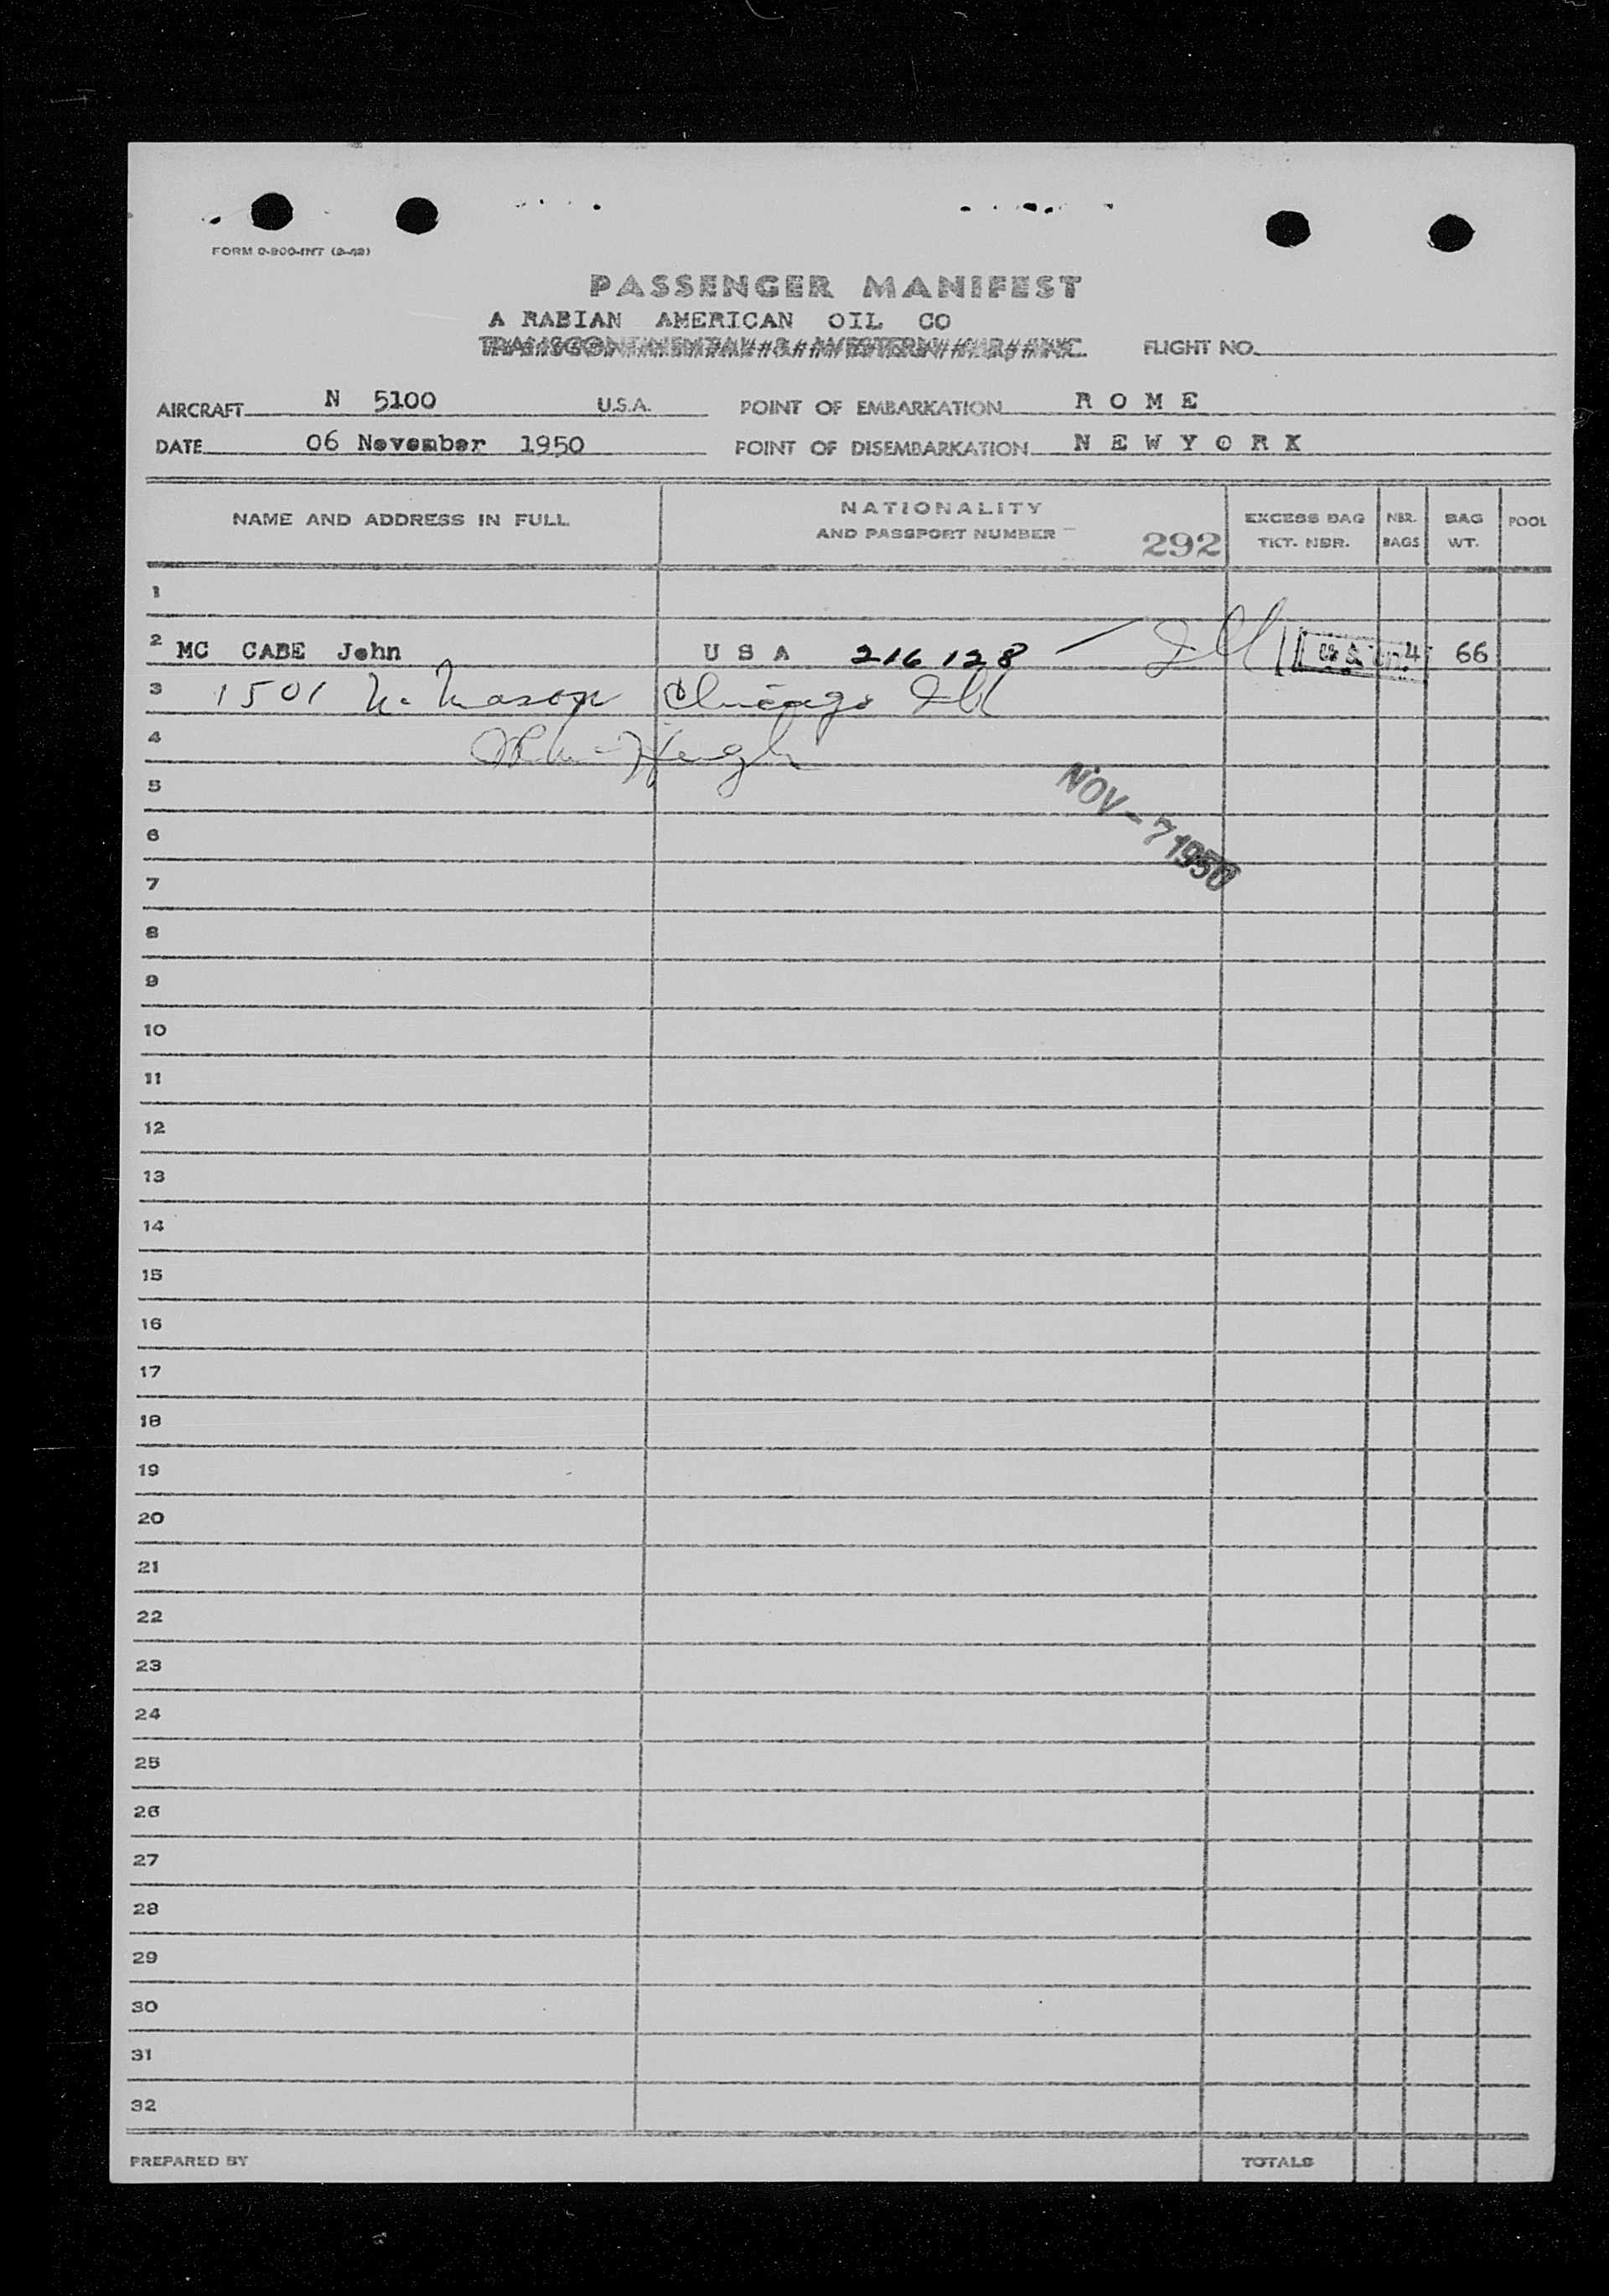 FORM 0-800-INT
PASSENGER MANIFEST
A RABIAN AMERICAN OIL CO
TRANSCONTINENTAL & WESTERN AIR, INC. FLIGHT NO.
AIRCRAFT N 5100 U.S.A. POINT OF EMBARKATION R O M E
DATE 06 November 1950 POINT OF DISEMBARKATION N E W Y O R K
NAME AND ADDRESS IN FULL NATIONALITY AND PASSPORT NUMBER 292 EXCESS BAG TKT. NBR. NBR. BAGS BAG WT. POOL
1
2 MC CABE John U S A 216128 4 66
3 1501 N. Mason Chicago Ill
4
5
NOV - 7 1950
6
7
8
9
10
11
12
13
14
15
16
17
18
19
20
21
22
23
24
25
26
27
28
29
30
31
32
PREPARED BY TOTALS